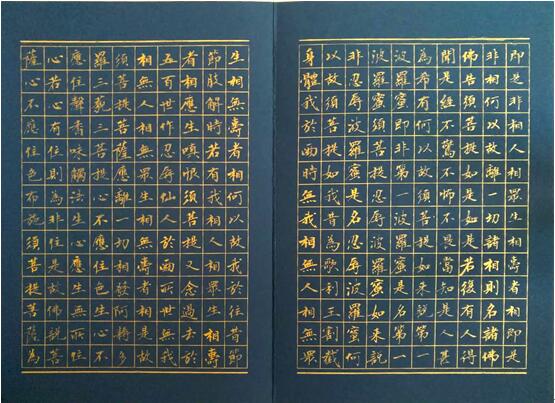 即是非相人相眾生相壽者相即是
非相何以故離一切諸相則名諸佛
佛告須菩提如是如是若後有人得
聞是經不驚不怖不畏當知是人甚
為希有何以故須菩提如來說第一
波羅蜜即非第一波羅蜜是名第一
波羅蜜須菩提忍辱波羅蜜如來說
非忍辱波羅蜜是名忍辱波羅蜜何
以故須菩提如我昔為歌利王割截
身體我於爾時無我相無人相無眾
生相無壽者相何以故我於往昔節
節肢解時若有我相人相眾生相壽
者相應生嗔恨須菩提又念過去於
五百世作忍辱仙人於爾所世無我
相無人相無眾生相無壽者相是故
須菩提菩薩應離一切相發阿耨多
羅三藐三菩提心不應住色生心不
應住聲香味觸法生心應生無所住
心若心有住則為非住是故佛說菩
薩心不應住色布施須菩提菩薩為